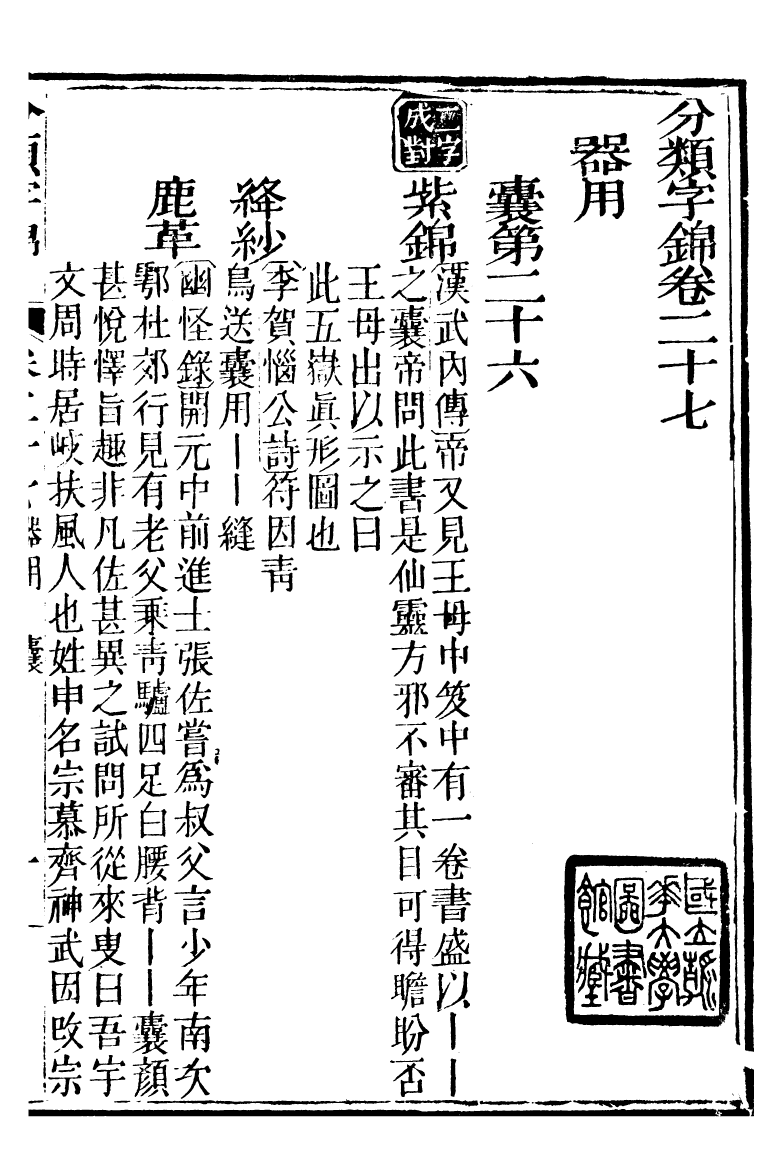 分類字錦卷二十七
器用
囊第二十六
二字成對
紫錦
漢武內傳帝又見王母巾笈中有一卷書盛以〡〡
之囊帝問此書是仙靈方邪不審其目可得瞻盼否
王母出以示之曰
此五嶽眞形圖也
絳紗
李賀惱公詩符因靑
鳥送囊用〡〡縫
鹿革
幽怪錄開元中前進士張佐嘗爲叔父言少年南次
鄠杜郊行見有老父乘靑驢四足白腰背〡〡囊顏
甚悅懌旨趣非凡佐甚異之試問所從來叟曰吾宇
文周時居岐扶風人也姓申名宗慕齊神武因改宗
器用 囊 一
國立清華大學圖書館藏